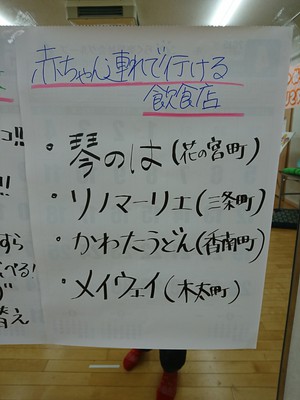 赤ちゃん連れで行ける
飲食店
・琴のは(花の宮町)
・リノマーリエ(三条町)
・かわたうどん(香南町)
・メイウェイ(木太町)
!!
!!
すら
べる!
替え